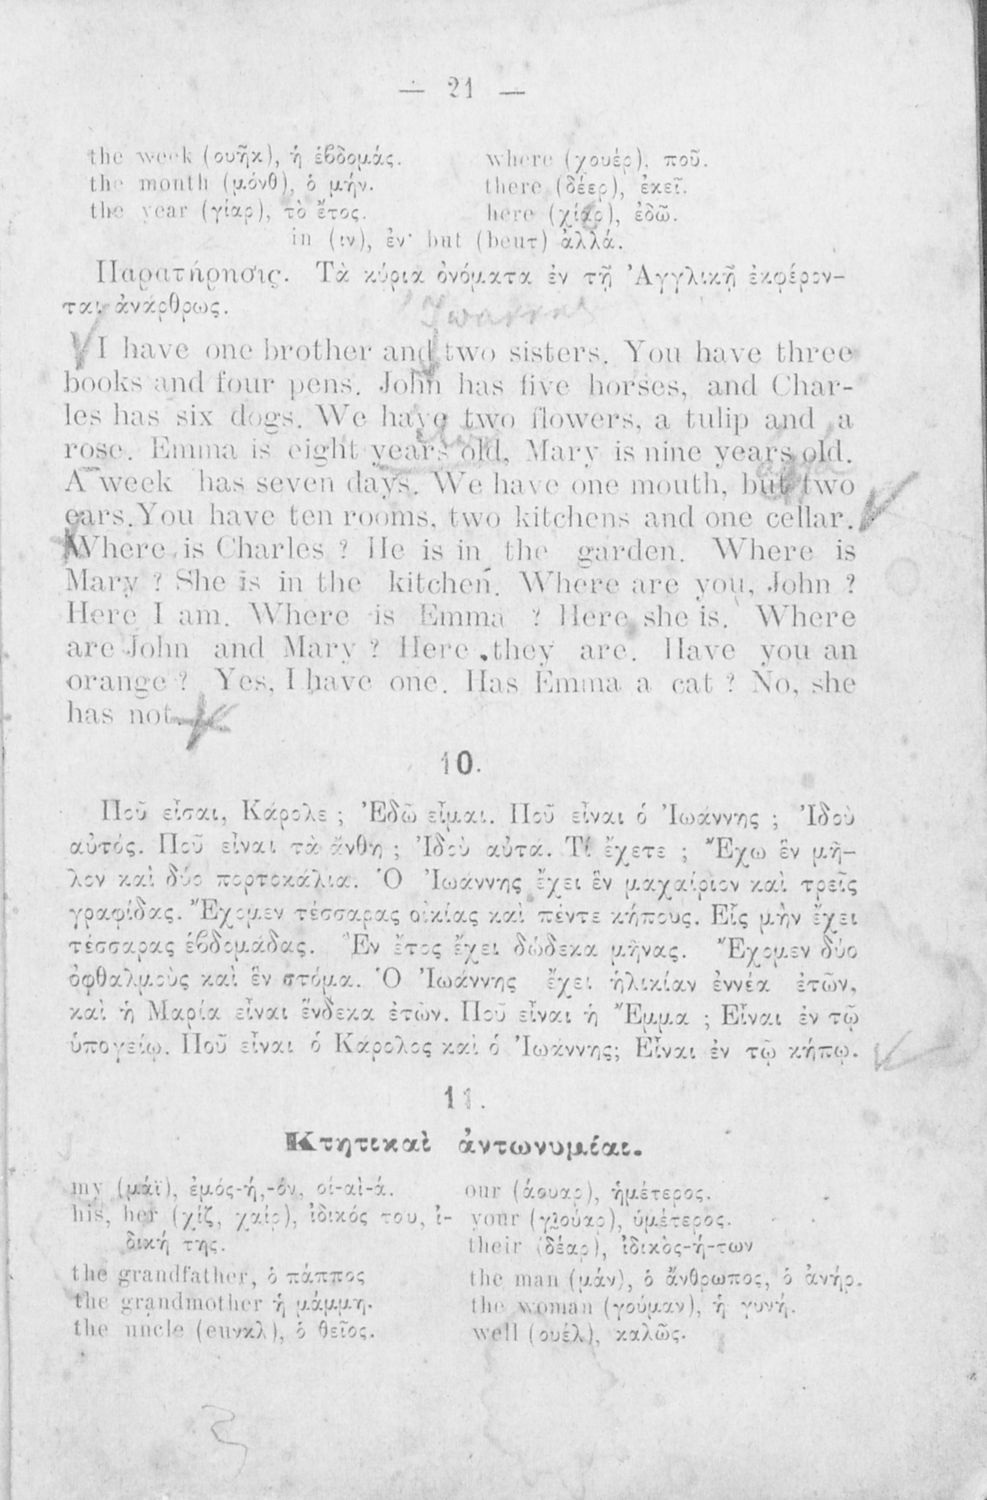 — 21 —
the week (ουῆκ), ἡ ἑβδομάς.
where (χουέρ), ποῦ.
the month (μόνθ), ὁ μήν.
there (δέερ), ἐκεῖ.
the year (γίαρ), τὸ ἔτος.
here (χίαρ), ἐδῶ.
in (ιν), ἐν· but (beuτ) ἀλλά.
Παρατήρησις. Τὰ κύρια ὀνόματα ἐν τῇ Ἀγγλικῇ ἐκφέρον-
ται ἀνάρθρως.
I have one brother and two sisters. You have three
books and four pens. John has five horses, and Char-
les has six dogs. We have two flowers, a tulip and a
rose. Emma is eight years old, Mary is nine years old.
A week has seven days. We have one mouth, but two
ears. You have ten rooms, two kitchens and one cellar.
Where is Charles ? He is in the garden. Where is
Mary ? She is in the kitchen. Where are you, John ?
Here I am. Where is Emma ? Here she is. Where
are John and Mary ? Here they are. Have you an
orange ? Yes, I have one. Has Emma a cat ? No, she
has not.
10.
Ποῦ εἶσαι, Κάρολε ; Ἐδῶ εἶμαι. Ποῦ εἶναι ὁ Ἰωάννης ; Ἰδοὺ
αὐτός. Ποῦ εἶναι τὰ ἄνθη ; Ἰδοὺ αὐτά. Τί ἔχετε ; Ἔχω ἓν μῆ-
λον καὶ δύο πορτοκάλια. Ὁ Ἰωάννης ἔχει ἓν μαχαίριον καὶ τρεῖς
γραφίδας. Ἔχομεν τέσσαρας οἰκίας καὶ πέντε κήπους. Εἷς μὴν ἔχει
τέσσαρας ἑβδομάδας. Ἓν ἔτος ἔχει δώδεκα μῆνας. Ἔχομεν δύο
ὀφθαλμοὺς καὶ ἓν στόμα. Ὁ Ἰωάννης ἔχει ἡλικίαν ἐννέα ἐτῶν,
καὶ ἡ Μαρία εἶναι ἕνδεκα ἐτῶν. Ποῦ εἶναι ἡ Ἔμμα ; Εἶναι ἐν τῷ
ὑπογείῳ. Ποῦ εἶναι ὁ Κάρολος καὶ ὁ Ἰωάννης; Εἶναι ἐν τῷ κήπῳ.
11.
Κτητικαὶ ἀντωνυμίαι.
my (μάϊ), ἐμός-ή,-όν, οἱ-αἱ-ά.
our (άουαρ), ἡμέτερος.
his, her (χίζ, χαίρ), ἰδικός του, ἰ-
δική της.
your (γιούαρ), ὑμέτερος.
their (δέαρ), ἰδικὸς-ή-των
the grandfather, ὁ πάππος
the man (μάν), ὁ ἄνθρωπος, ὁ ἀνήρ.
the grandmother ἡ μάμμη.
the woman (γούμαν), ἡ γυνή.
the uncle (eυνκλ), ὁ θεῖος.
well (ουέλ), καλῶς.